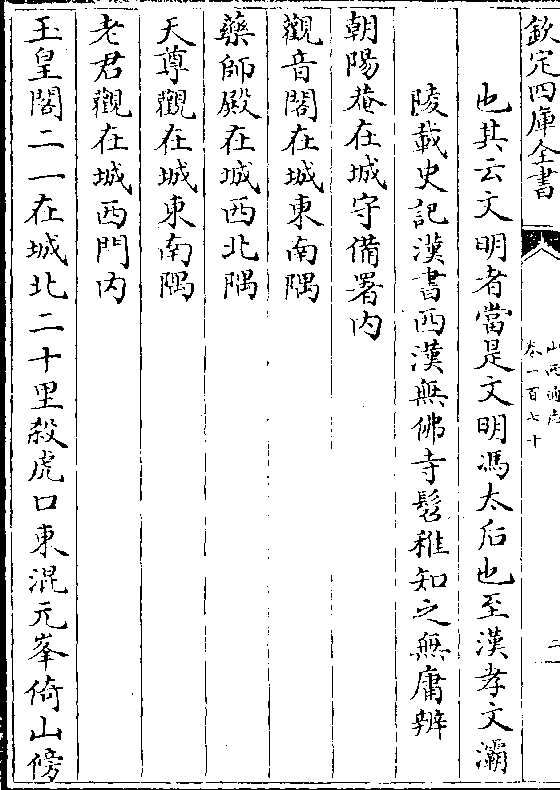 欽定四庫全書
山西通志
卷一百七十
二
也其云文明者當是文明馮太后也至漢孝文灞
陵載史記漢書西漢無佛寺髫稚知之無庸辨
朝陽菴在城守備署内
觀音閣在城東南隅
藥師殿在城西北隅
天尊觀在城東南隅
老君觀在城西門内
玉皇閣二一在城北二十里殺虎口東混元峯倚山傍